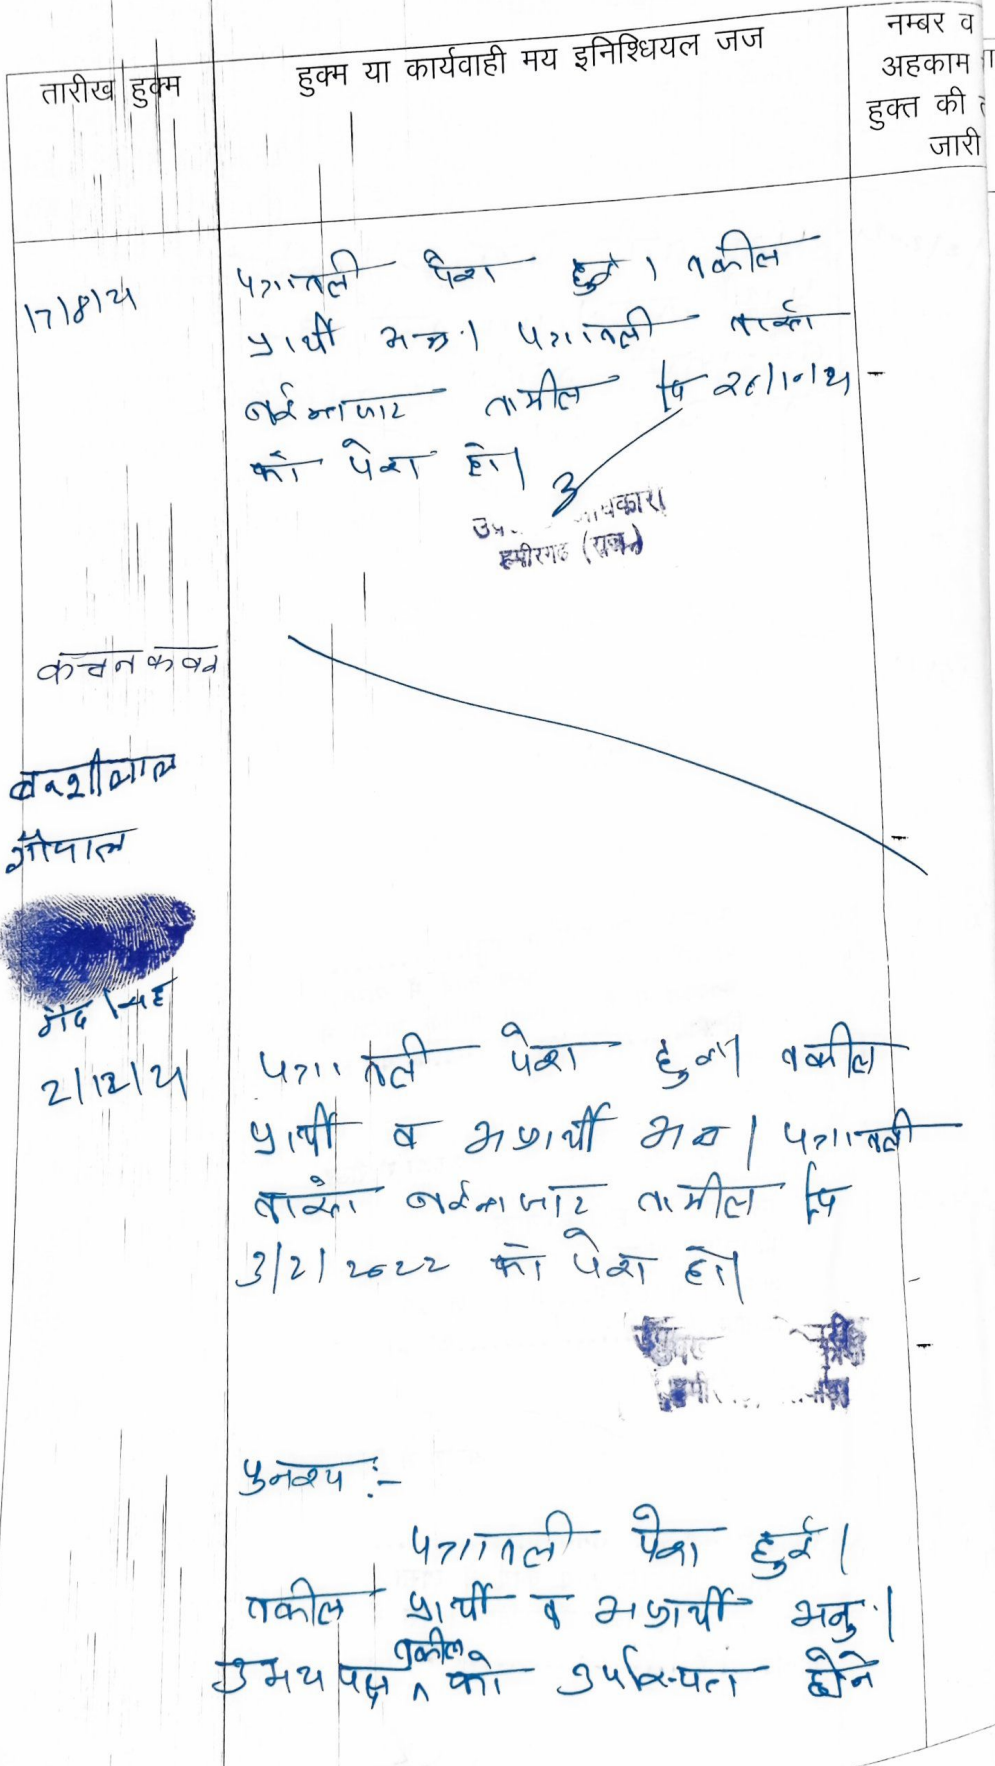 तारीख हुक्म
हुक्म या कार्यवाही मय इनिश्धियल जज
नम्बर व
अहकाम
हुक्त की
जारी
17/8/21
पत्रावली पेश हुई। वकील
प्रार्थी अनु.। पत्रावली वास्ते
तामील दि
को पेश हो।
हमीरगढ (राज.)
कंचन कवर
बन्शीलाल
गोपाल
2/12/21
पत्रावली पेश हुआ वकील
प्रार्थी व अप्रार्थी अनु। पत्रावली
वास्ते तामील दि
3/2/2022 को पेश हो।
पुनश्च :-
पत्रावली पेश हुई।
वकील प्रार्थी व अप्रार्थी अनु.।
उभय पक्ष वकील को उपस्थित होने